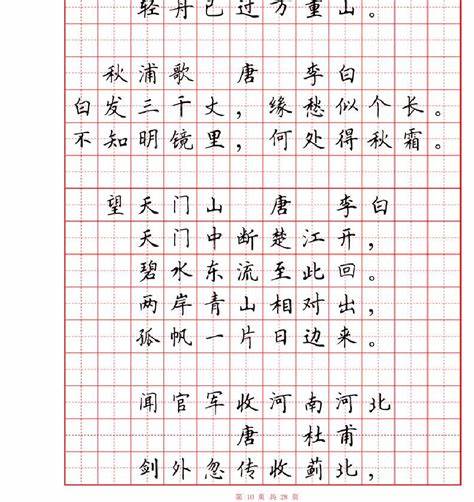 轻舟已过万重山。
秋浦歌 唐 李白
白发三千丈，缘愁似个长。
不知明镜里，何处得秋霜。
望天门山 唐 李白
天门中断楚江开，
碧水东流至此回。
两岸青山相对出，
孤帆一片日边来。
闻官军收河南河北
唐 杜甫
剑外忽传收蓟北，
第 10 页 共 28 页